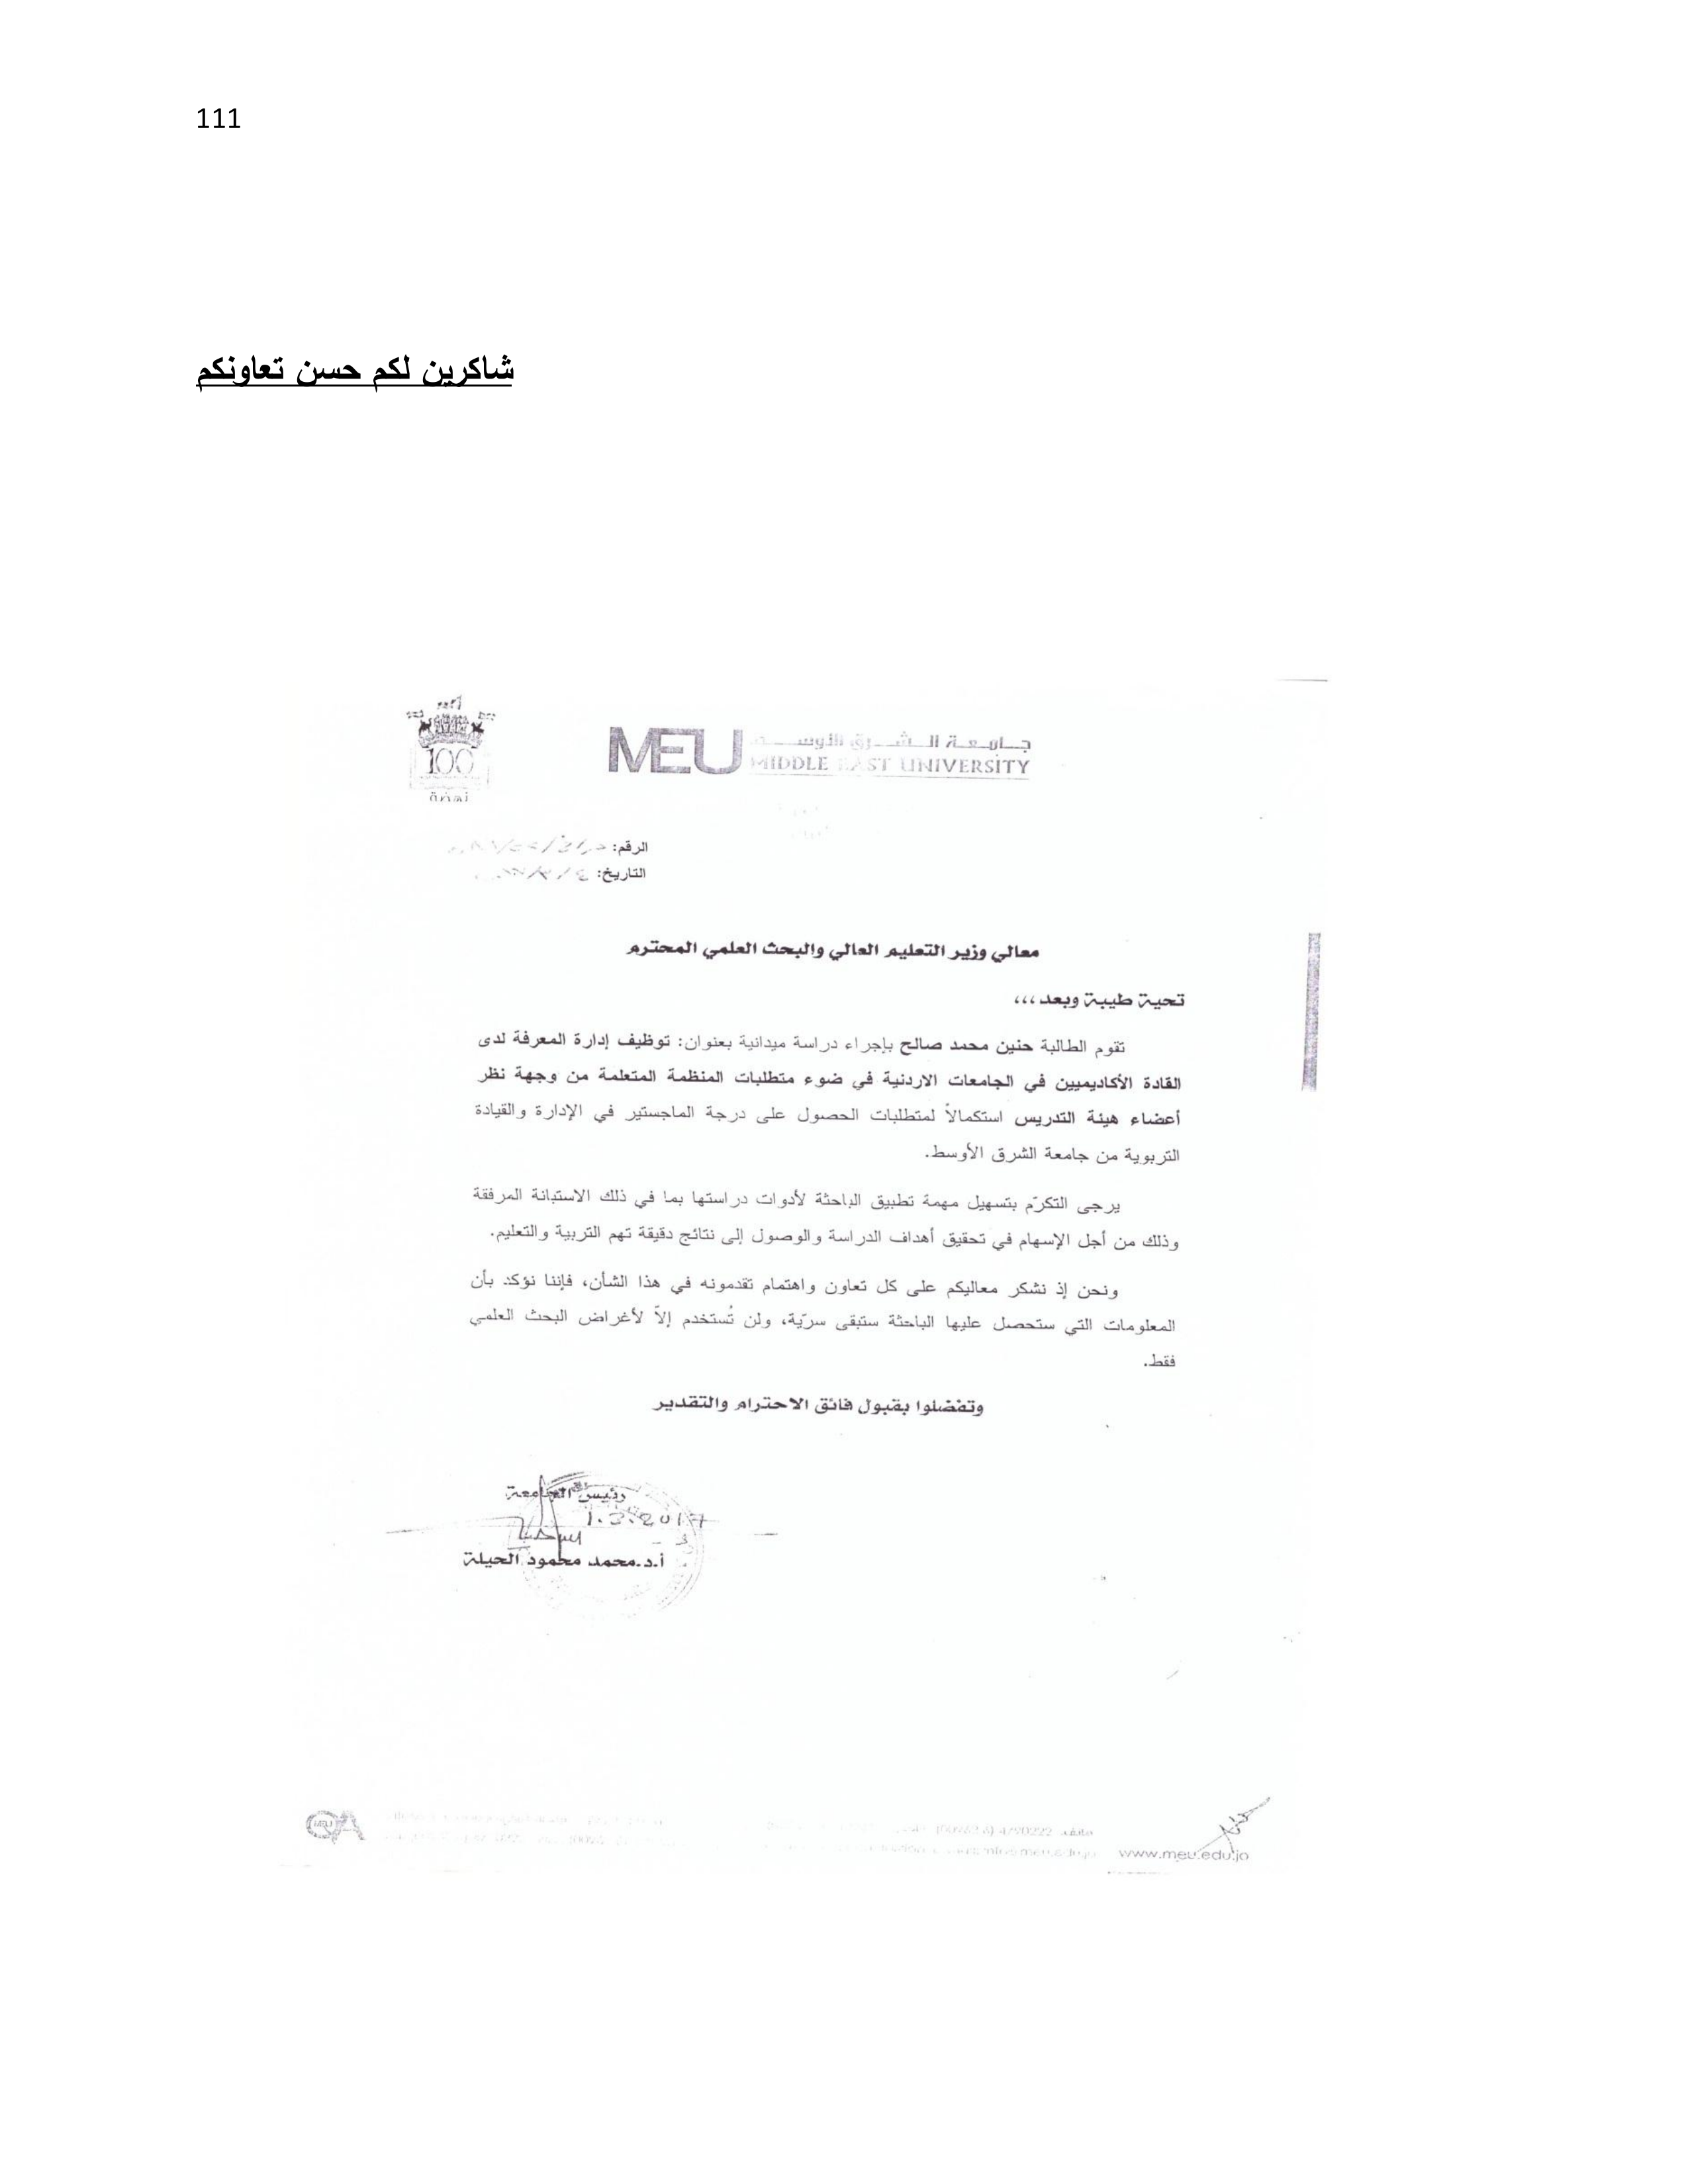 111
شاكرين لكم حسن تعاونكم
100
نهضة
MEU
جامعة الشرق الأوسط
MIDDLE EAST UNIVERSITY
الرقم:
التاريخ:
معالي وزير التعليم العالي والبحث العلمي المحترم
تحية طيبة وبعد،،،
تقوم الطالبة حنين محمد صالح بإجراء دراسة ميدانية بعنوان: توظيف إدارة المعرفة لدى
القادة الأكاديميين في الجامعات الاردنية في ضوء متطلبات المنظمة المتعلمة من وجهة نظر
أعضاء هيئة التدريس استكمالاً لمتطلبات الحصول على درجة الماجستير في الإدارة والقيادة
التربوية من جامعة الشرق الأوسط.
يرجى التكرّم بتسهيل مهمة تطبيق الباحثة لأدوات دراستها بما في ذلك الاستبانة المرفقة
وذلك من أجل الإسهام في تحقيق أهداف الدراسة والوصول إلى نتائج دقيقة تهم التربية والتعليم.
ونحن إذ نشكر معاليكم على كل تعاون واهتمام تقدمونه في هذا الشأن، فإننا نؤكد بأن
المعلومات التي ستحصل عليها الباحثة ستبقى سرّية، ولن تُستخدم إلاّ لأغراض البحث العلمي
فقط.
وتفضلوا بقبول فائق الاحترام والتقدير
رئيس الجامعة
1.3.2017
أ.د.محمد محمود الحيلة
MEU
QA
هاتف:
www.meu.edu.jo